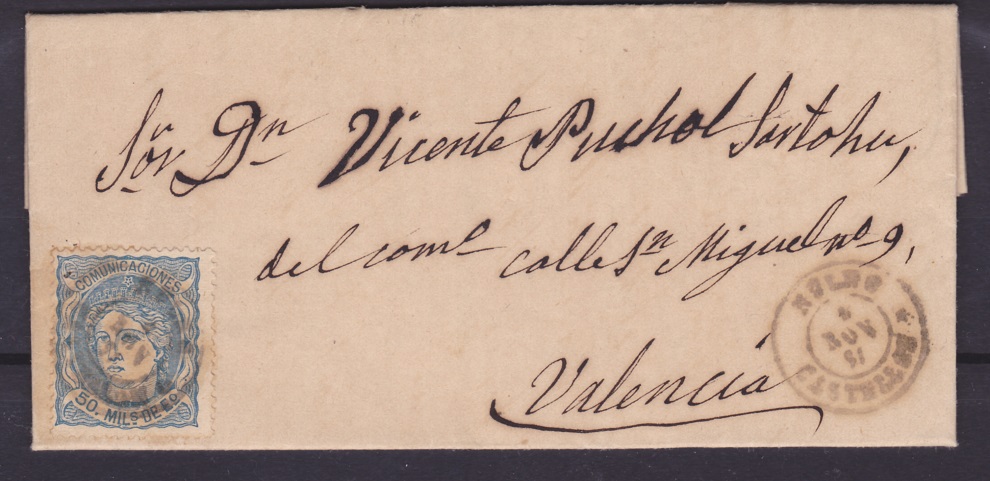 Sor. Dn Vicente Puchol Sartohu,
del como calle Sn Miguel no 9,
Valencia
COMUNICACIONES
50. MILS. DE Eo
NOV